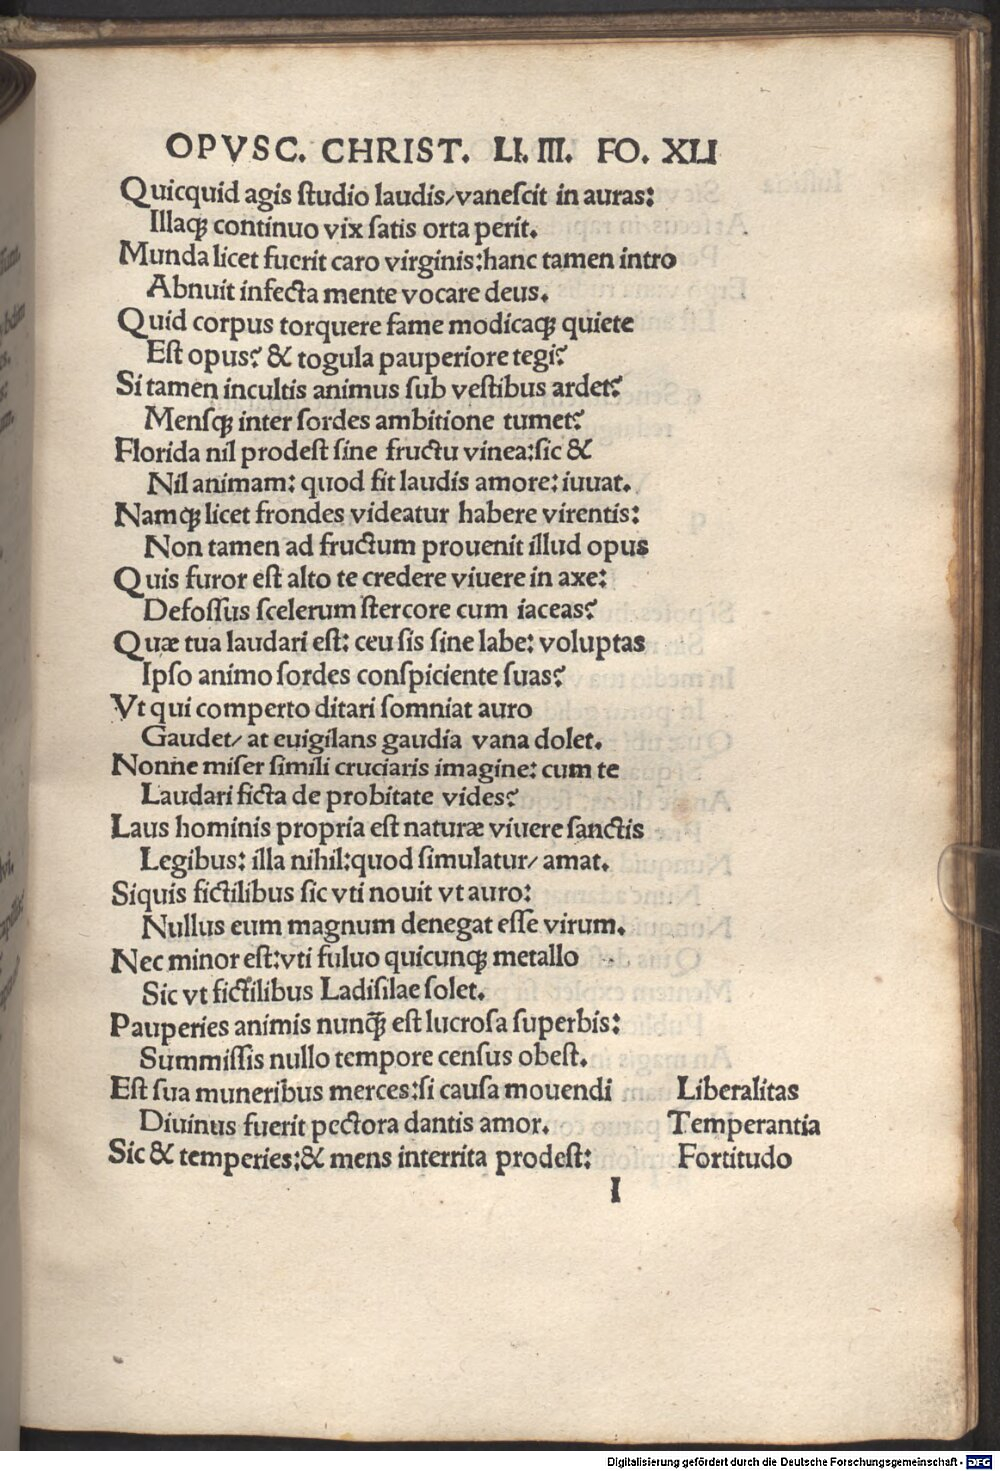 OPVSC. CHRIST. LI. III. FO. XLI
Quicquid agis ſtudio laudis/vaneſcit in auras:
Illaqꝫ continuo vix ſatis orta perit.
Munda licet fuerit caro virginis:hanc tamen intro
Abnuit infecta mente vocare deus.
Quid corpus torquere fame modicaqꝫ quiete
Eſt opus? & togula pauperiore tegi?
Si tamen incultis animus ſub veſtibus ardet?
Menſqꝫ inter ſordes ambitione tumet?
Florida nil prodeſt ſine fructu vinea:ſic &
Nil animam: quod fit laudis amore: iuuat.
Namqꝫ licet frondes videatur habere virentis:
Non tamen ad fructum prouenit illud opus
Quis furor eſt alto te credere viuere in axe:
Defoſſus ſcelerum ſtercore cum iaceas?
Quæ tua laudari eſt: ceu ſis ſine labe: voluptas
Ipſo animo ſordes conſpiciente ſuas?
Vt qui comperto ditari ſomniat auro
Gaudet/ at euigilans gaudia vana dolet.
Nonne miſer ſimili cruciaris imagine: cum te
Laudari ficta de probitate vides?
Laus hominis propria eſt naturæ viuere ſanctis
Legibus: illa nihil:quod ſimulatur/ amat.
Siquis fictilibus ſic vti nouit vt auro:
Nullus eum magnum denegat eſſe virum.
Nec minor eſt:vti fuluo quicunqꝫ metallo
Sic vt fictilibus Ladiſilae ſolet.
Pauperies animis nunq̃ꝫ eſt lucroſa ſuperbis:
Summiſſis nullo tempore cenſus obeſt.
Eſt ſua muneribus merces:ſi cauſa mouendi Liberalitas
Diuinus fuerit pectora dantis amor. Temperantia
Sic & temperies:& mens interrita prodeſt: Fortitudo
I
Digitalisierung gefördert durch die Deutsche Forschungsgemeinschaft - DFG